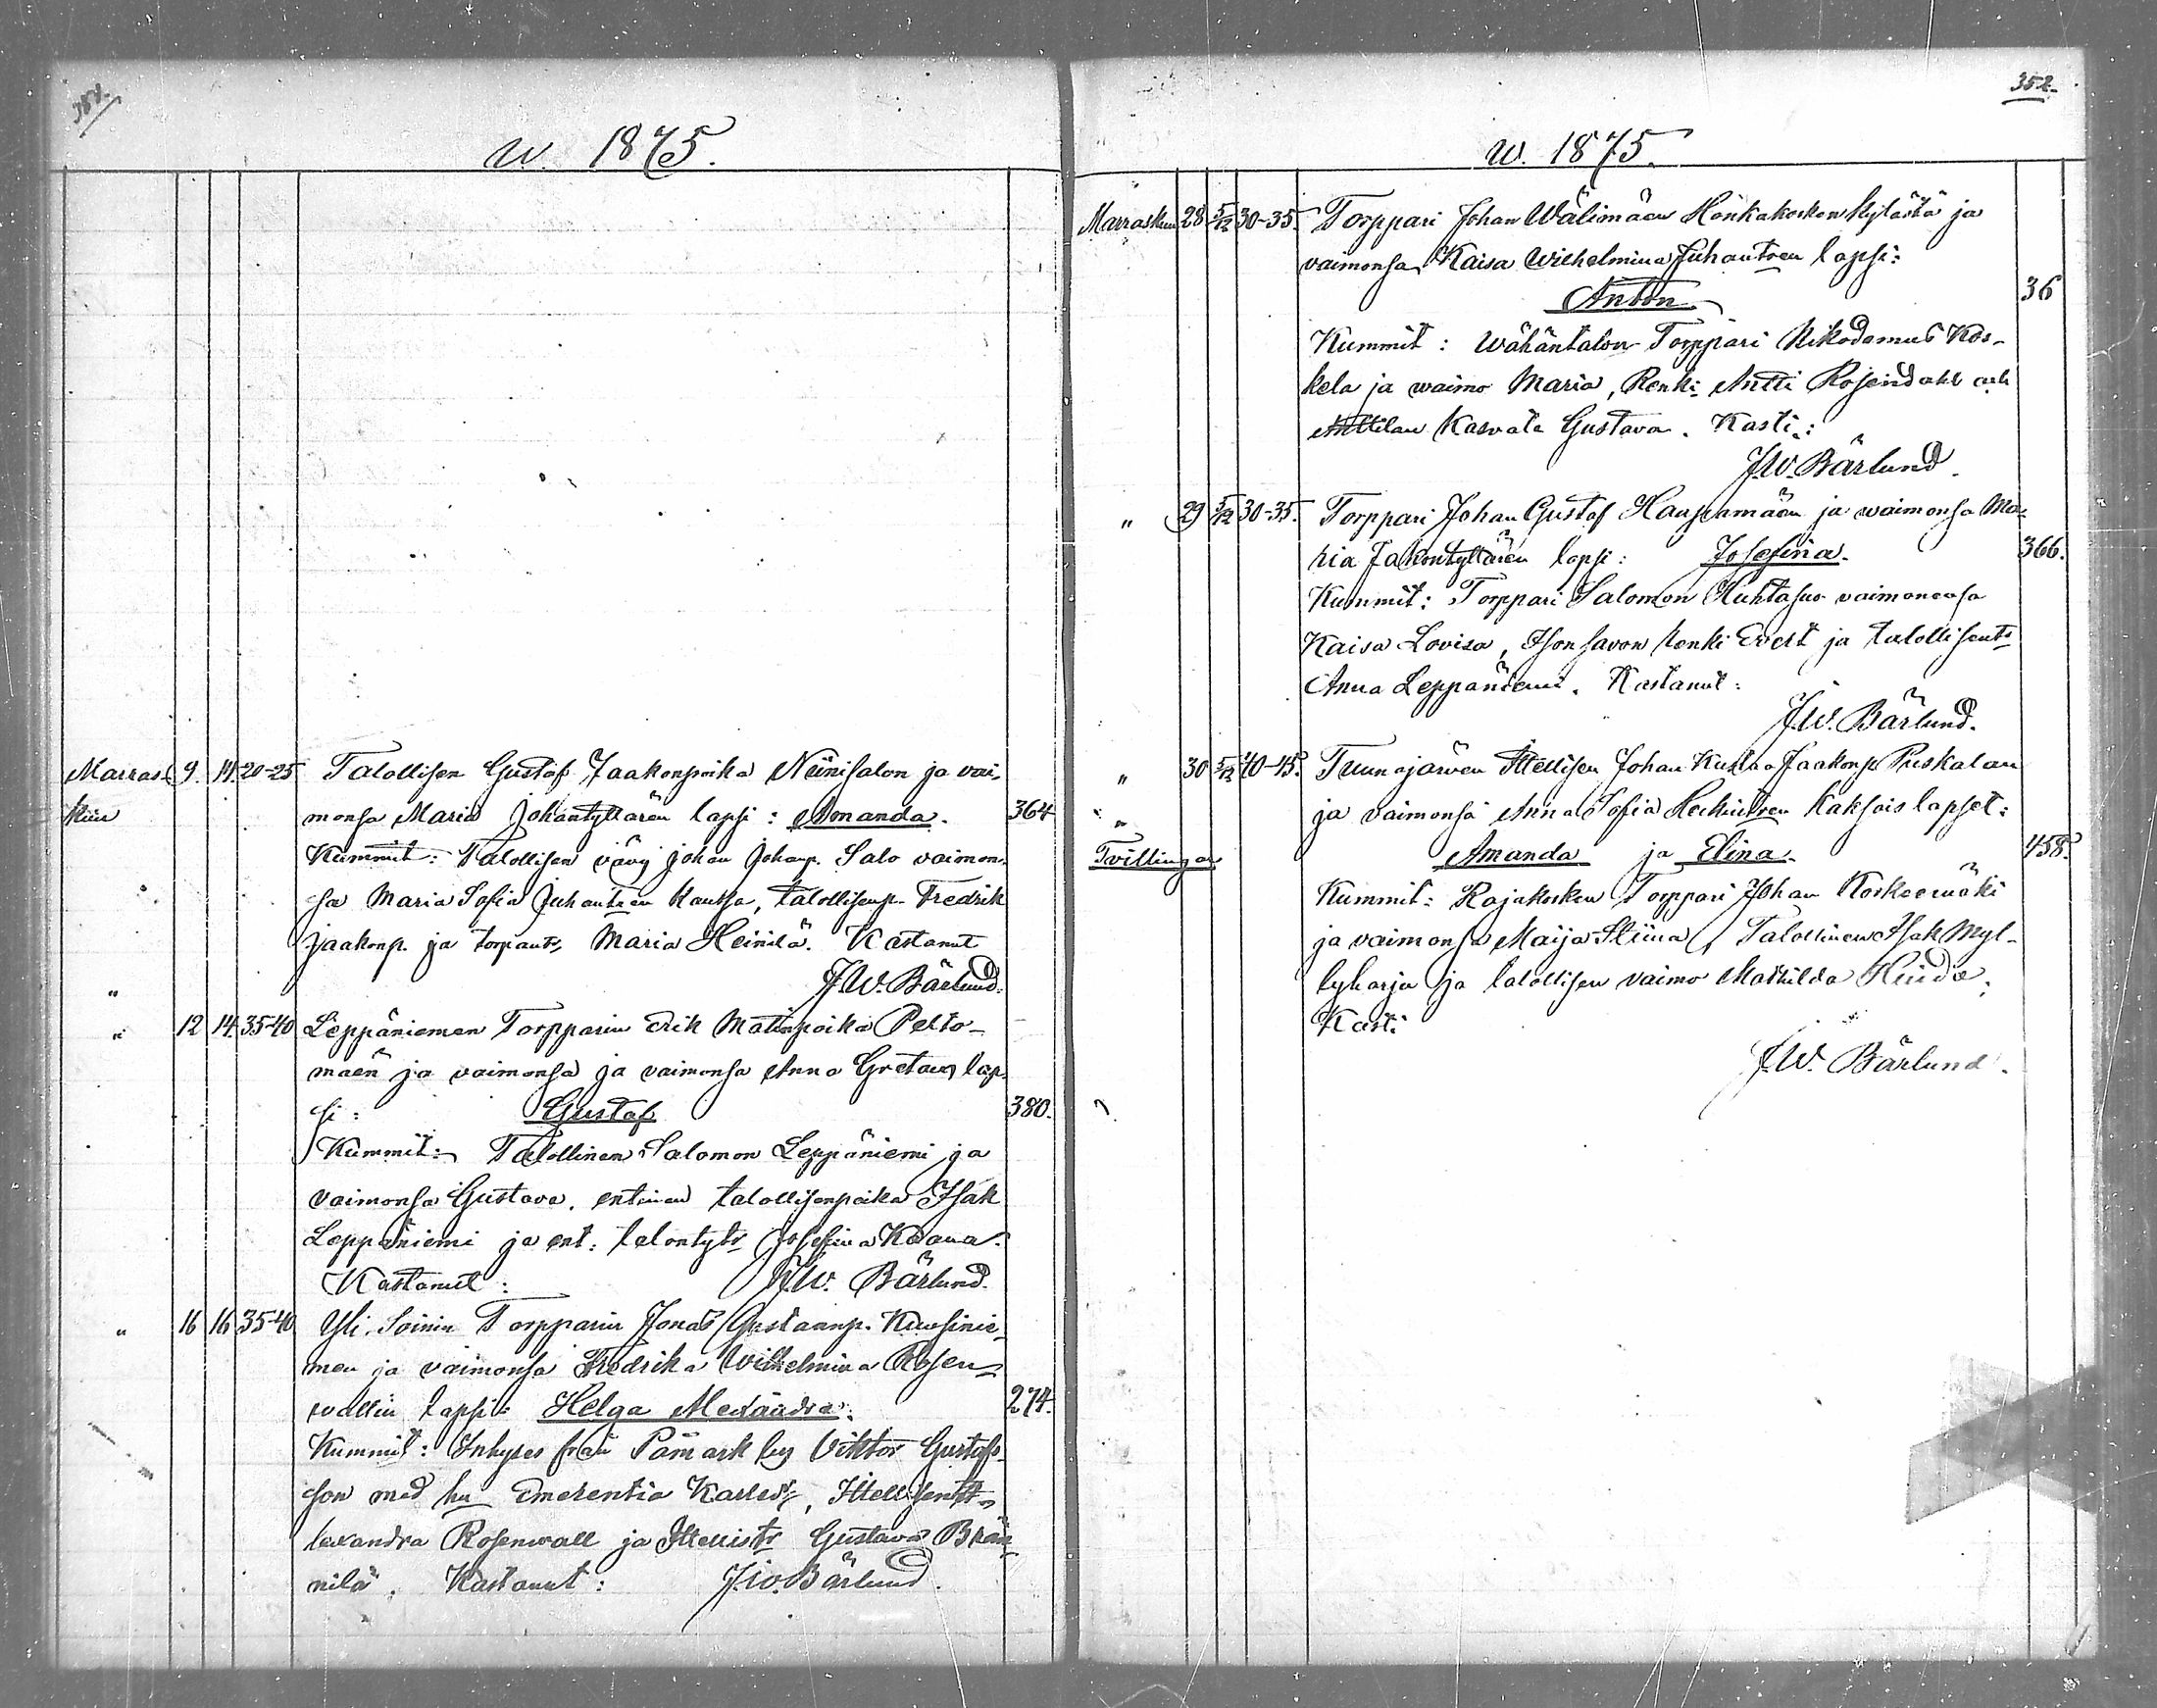 351.
w. 1875.
Marras- 9. 14. 20-25 Talollisen Gustaf Jaakonpoika Niinisalon ja vai-
kuu monsa Maria Johantyttären lapsi: Amanda. 364
Kummit: Talollisen vävy Johan Johanp. Salo vaimon-
sa Maria Sofia Juhantren kanssa, talollisenp. Fredrik
Jaakonp. ja torpantr Maria Heinilä. Kastanut
" J.W. Bärlund.
" 12 14. 35-40 Leppäniemen Torpparin Erik Matinpoika Pelto-
mäen ja vaimonsa ja vaimonsa Anna Gretan lap-
si: Gustaf 380.
Kummit: Talollinen Salomon Leppäniemi ja
vaimonsa Gustava, entinen talollisenpoika Isak
Leppäniemi ja ent. talontytr Josefina Kaana.
Kastanut: J.W. Bärlund.
" 16 16 35-40 Yli. Soinin Torpparin Jonas Gustaanp. Kuusinie-
men ja vaimonsa Fredrika Wilhelmina Rosen-
wallin lapsi: Helga Alexandra. 274.
Kummit: Inhyses från Påmark by Viktor Gustafs-
son med hu Emerentia Karlsdr, Ittellisentr
lexandra Rosenwall ja Ittellistr Gustava Brän-
nilä. Kastanut: J.W. Bärlund.
352.
w. 1875.
Marraskuu 28 5/12 30-35. Torppari Johan Wälimäen Honkakosken kylästä ja
vaimonsa Kaisa Wilhelmina Juhantren lapsi:
Anton. 36
Kummit: Wähäntalon Torppari Nikodemus Kos-
kela ja waimo Maria, Renki Antti Rosendahl och
Anttilan Kasvate Gustava. Kasti:
J.W. Bärlund.
" 29 5/12 30-35. Torppari Johan Gustaf Haapamäen ja waimonsa Ma-
ria Jakontyttären lapsi: Josefina. 366.
Kummit: Torppari Salomon Huhtasuo vaimonensa
Kaisa Lovisa, Isonsavon renki Evert ja talollisentr
Anna Leppäniemi. Kastanut:
J.W. Bärlund.
" 30 5/12 40-45. Tuunajärven Ittellisen Johan Kustaa Jaakonp Puskalan
" ja vaimonsa Anna Sofia Heikintren kaksois lapset:
Tvillingar Amanda ja Elina. 458.
Kummit: Rajakosken Torppari Johan Koskenmäki
ja vaimonsa Maija Stiina, Talollinen Isak Myl-
lyharju ja talollisen vaimo Mathilda Heidi.
Kasti
J.W. Bärlund.